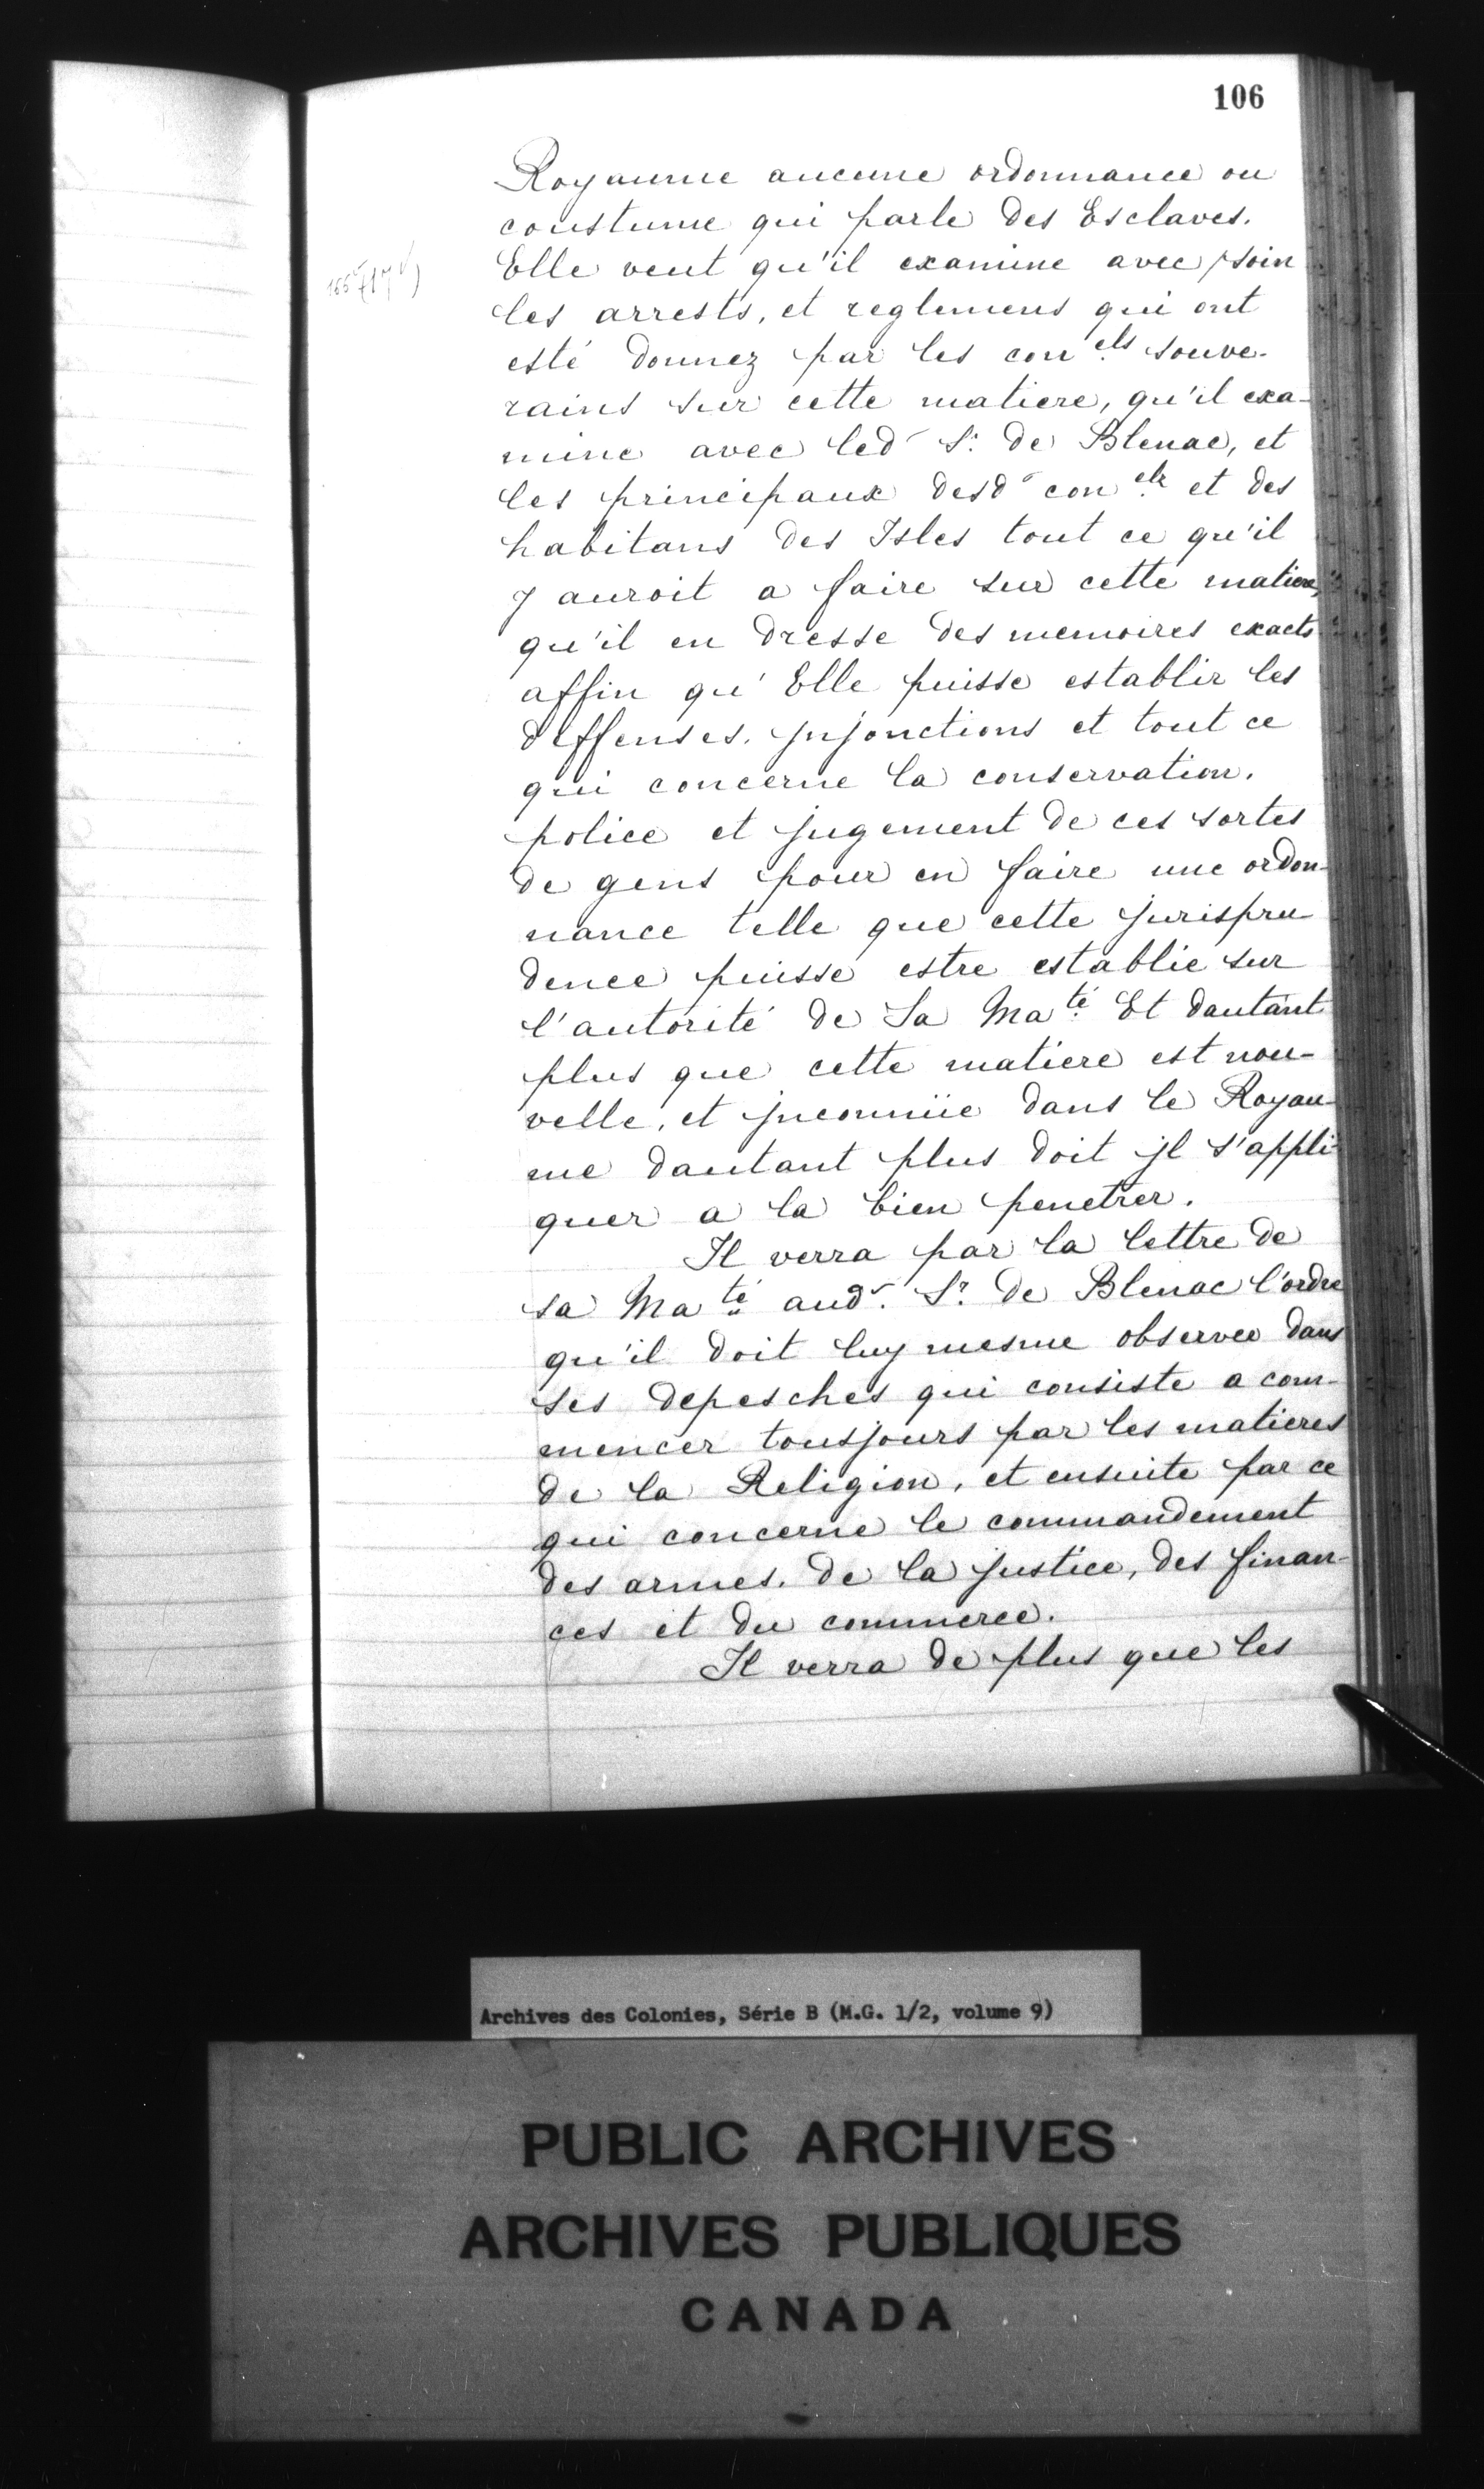 106
Royaume aucune ordonnance ou
coustume qui parle des Esclaves.
Elle veut qu'il examine avec soin
les arrests, et reglemens qui ont
esté donnez par les con.els souve-
rains sur cette matiere, qu'il exa-
mine avec led S.r de Blenac, et
les principaux desd con.els et des
habitans des Isles tout ce qu'il
y auroit a faire sur cette matiere,
qu'il en dresse des memoires exacts
affin qu'Elle puisse establir les
deffenses. jnjonctions et tout ce
qui concerne la conservation.
police et jugement de ces sortes
de gens pour en faire une ordon-
nance telle que cette jurispru-
dence puisse estre establie sur
l'autorité de Sa Ma.té Et dautant
plus que cette matiere est nou-
velle, et jnconnüe dans le Royau-
me dautant plus doit jl s'appli-
quer a la bien penetrer.
Il verra par la lettre de
sa Ma.té aud. S.r de Blenac l'ordre
qu'il doit luy mesme observer dans
ses depesches qui consiste a com-
mencer tousjours par les matieres
de la Religion, et ensuite par ce
qui concerne le commandement
des armes. de la justice, des finan-
ces et du commerce.
Il verra de plus que les
Archives des Colonies, Série B (M.G. 1/2, volume 9)
PUBLIC ARCHIVES
ARCHIVES PUBLIQUES
CANADA